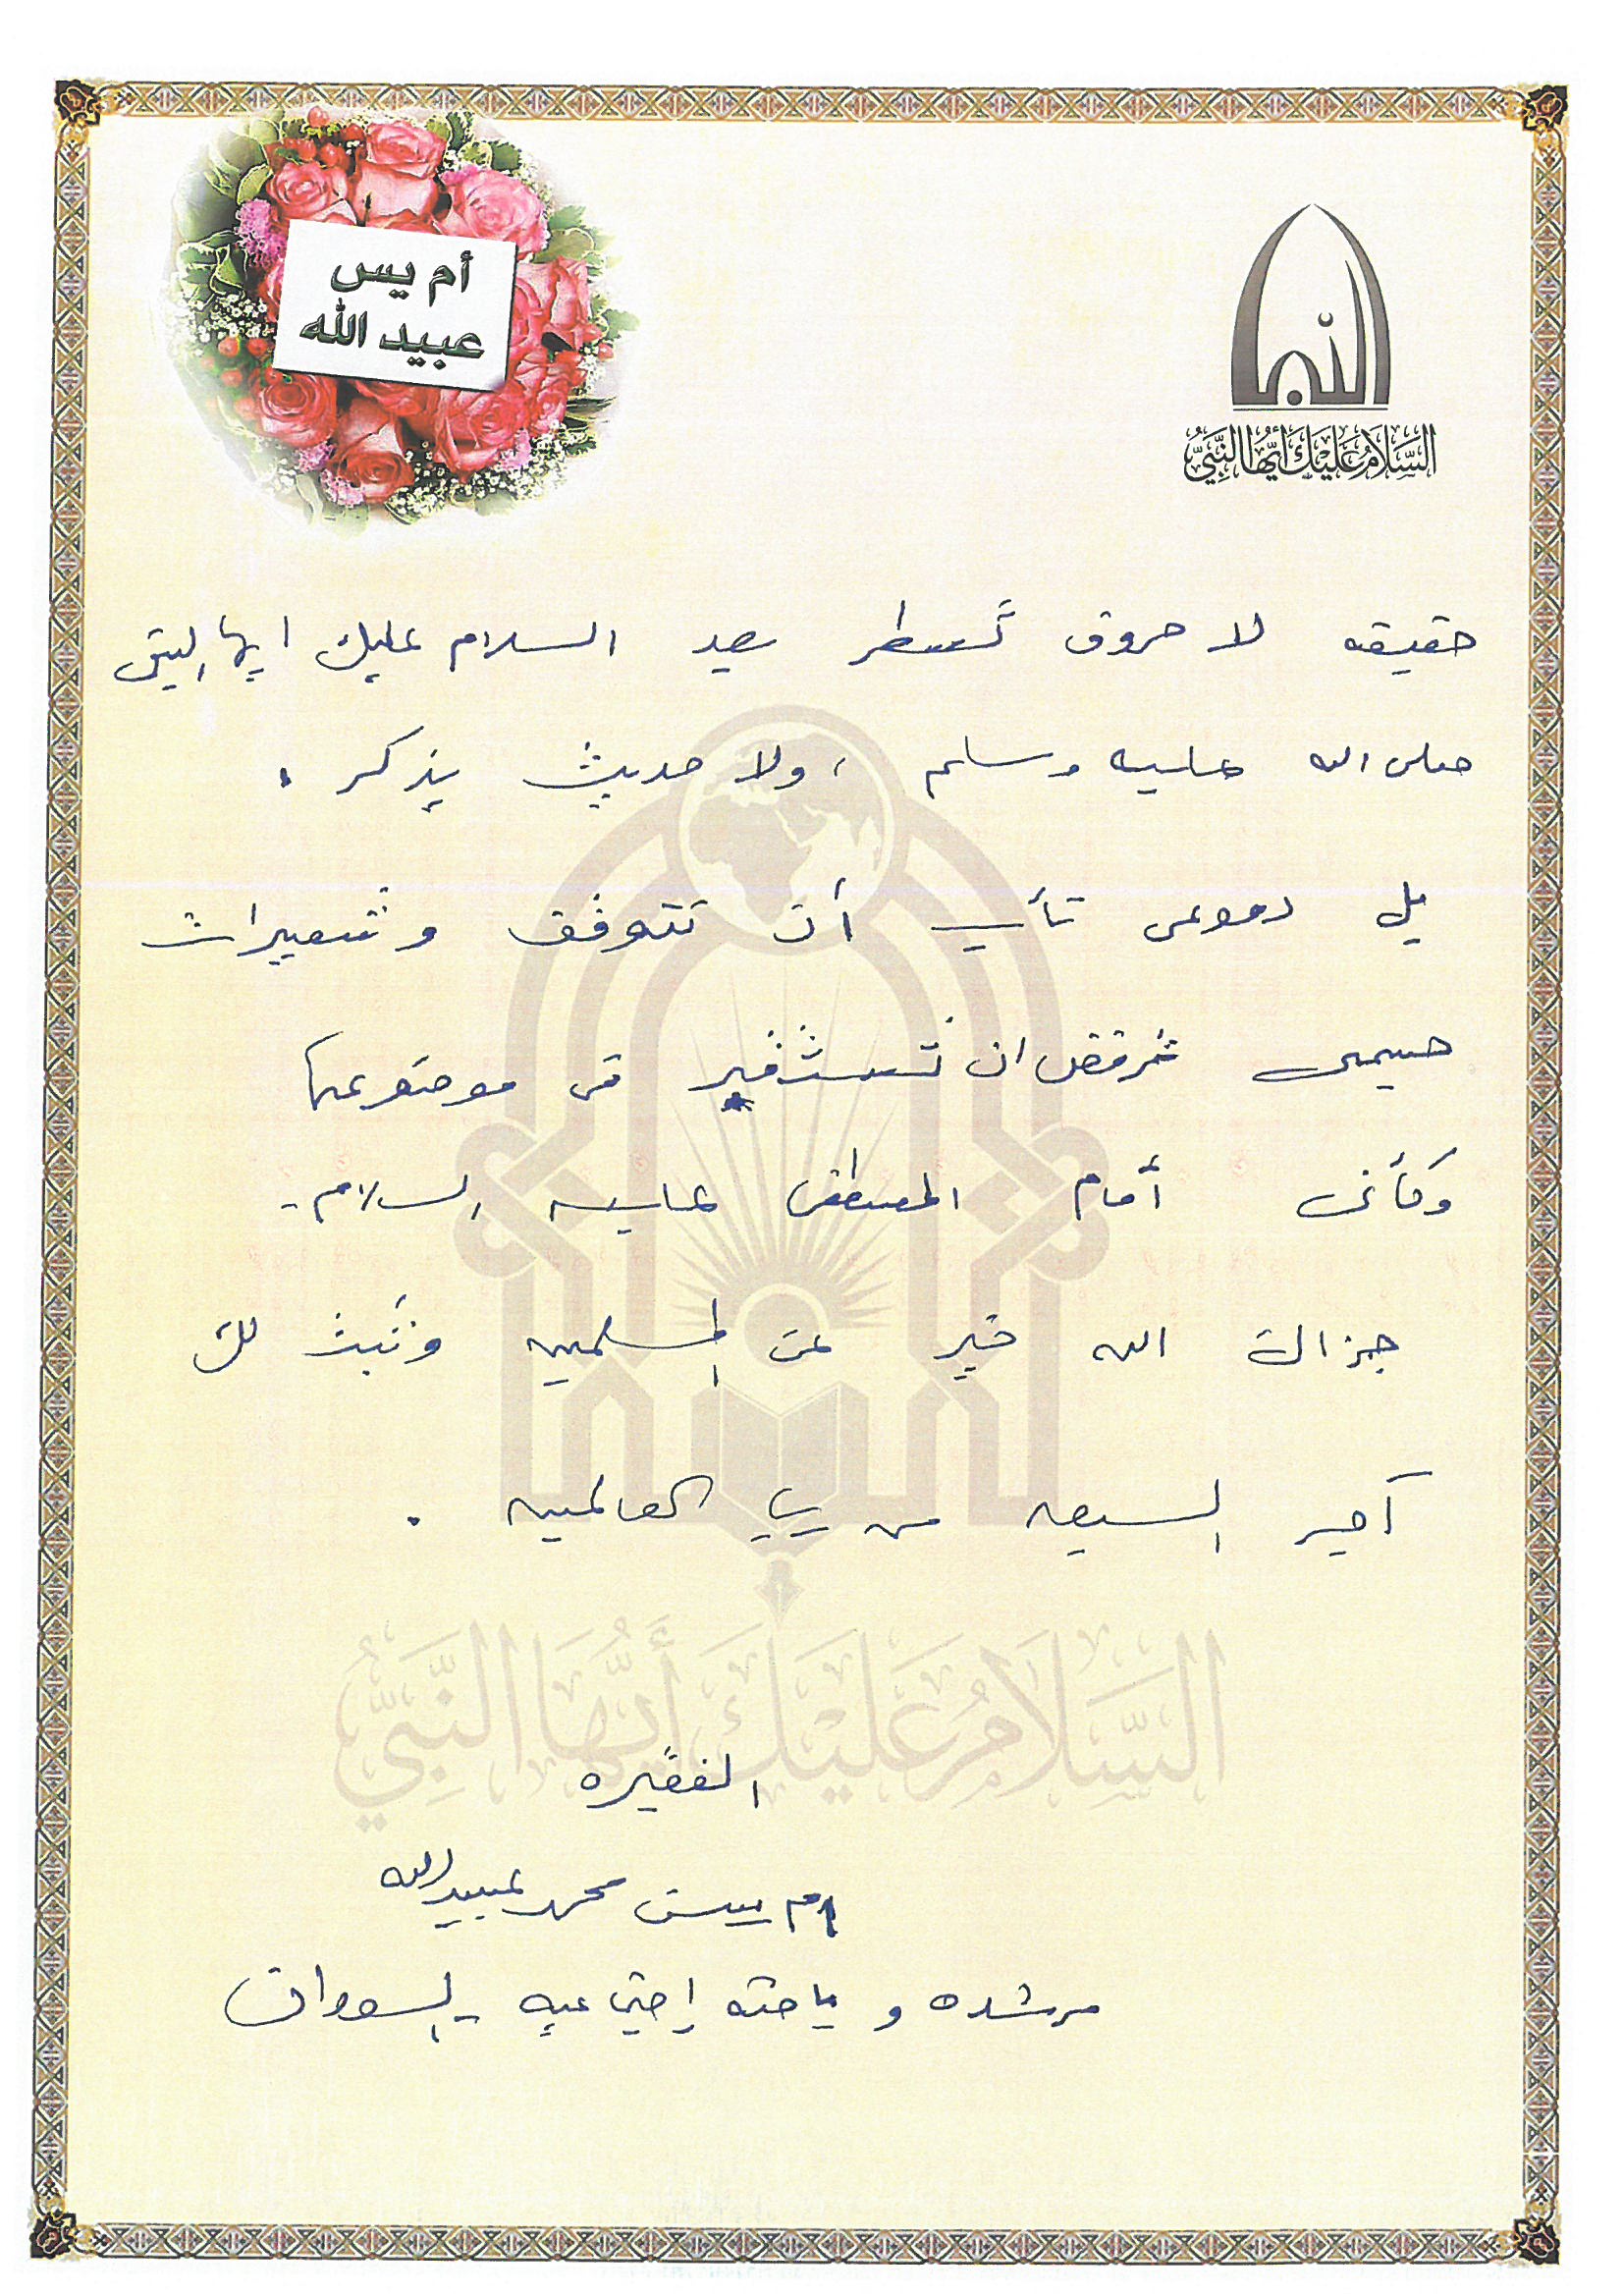 أم يس
عبيد الله
السلام عليك أيها النبي
حقيقه لا حروف تسطر بعد السلام عليك ايها النبي
صلى الله عليه وسلم ، ولا حديث يذكر .
بل دموعى تأبى أن تتوقف وشعيرات
جسمى ترفض ان تستقر فى موضوعها
وكأنى أمام المصطفى عليه السلام .
جزاك الله خير عن المسلمين ونبث لك
آجر السيعه من رب العالمين .
السلام عليك أيها النبي
الفقيره
ام يس محمد عبيدالله
مرشده و باحثه إجتماعيه بالسودان